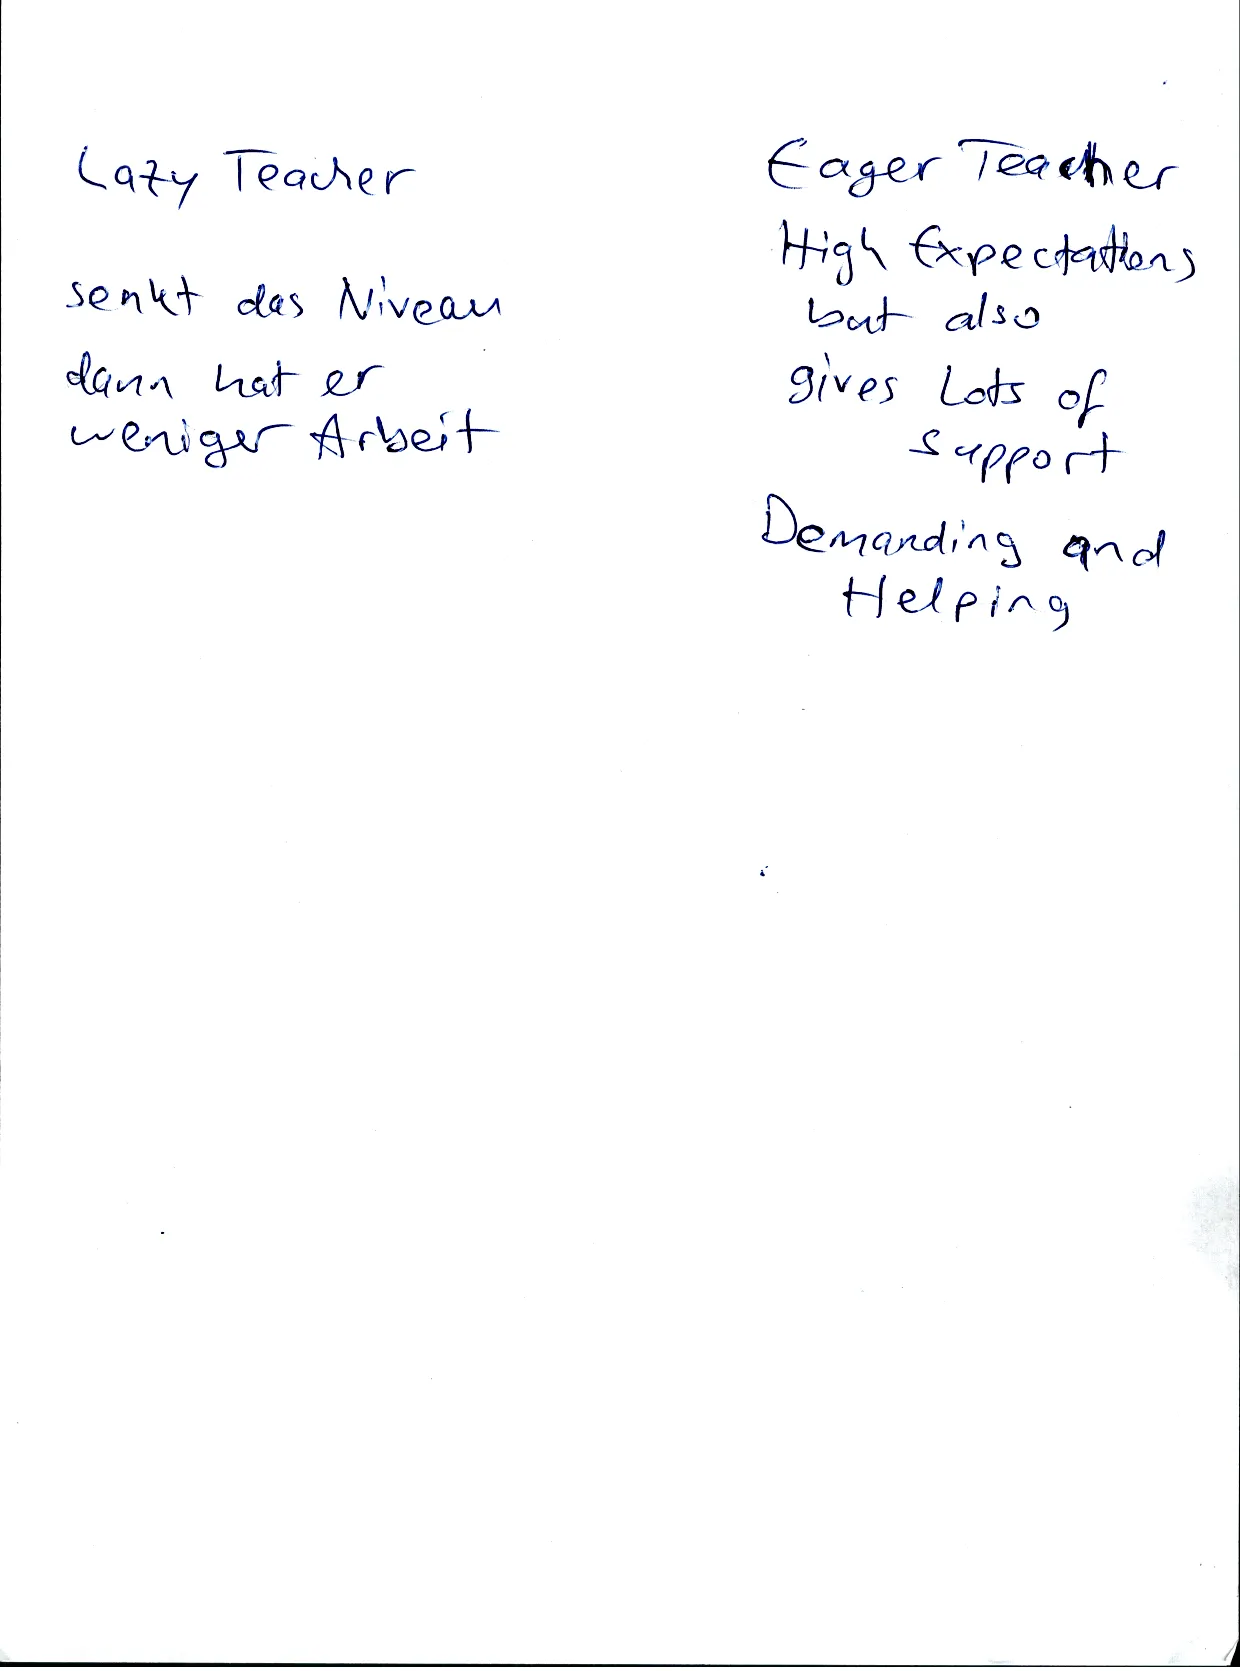 Lazy Teacher
senkt das Niveau
dann hat er
weniger Arbeit
Eager Teacher
High Expectations
but also
gives Lots of
support
Demanding and
Helping